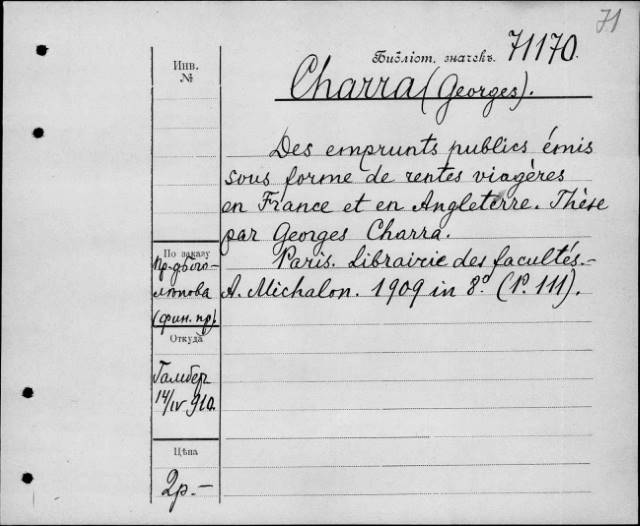 71
Библіот. значекъ. 71170.
Инв.
№
Charra (Georges).
Des emprunts publics émis
sous forme de rentes viagères
en France et en Angleterre. Thèse
par Georges Charra.
Paris. Librairie des facultés.-
A. Michalon. 1909 in 8º (P. 111).
По заказу
(фин. пр).
Откуда
Гамбер
14/IV 910.
Цѣна
2р.-